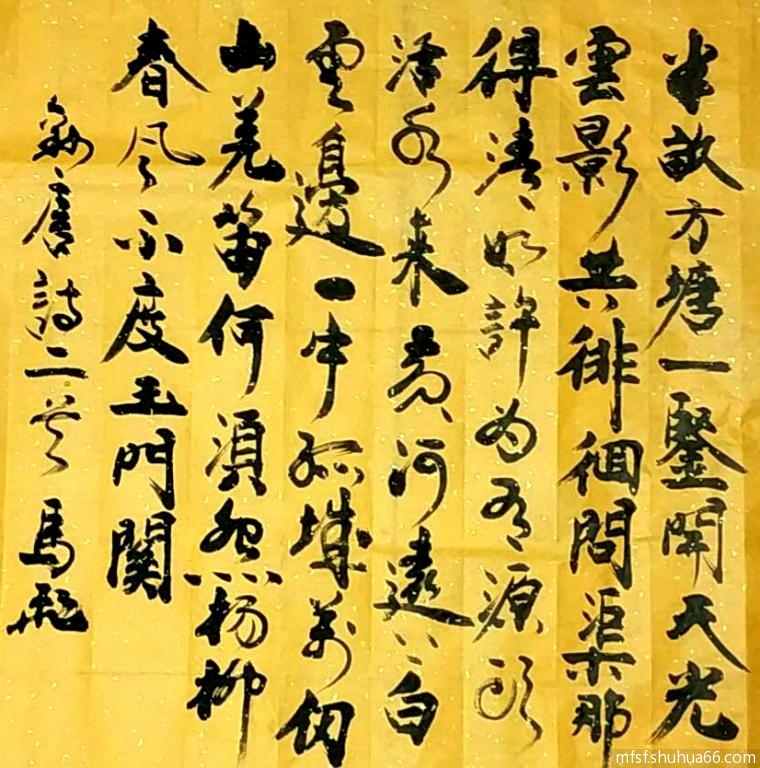 半畝方塘一鑒開天光
雲影共徘徊問渠那
得清如許为有源頭
活水來黄河遠上白
雲邊一片孤城萬仞
山羌笛何須怨楊柳
春風不度玉門關
唐詩二首 馬飛
mfsf.shuhua66.com